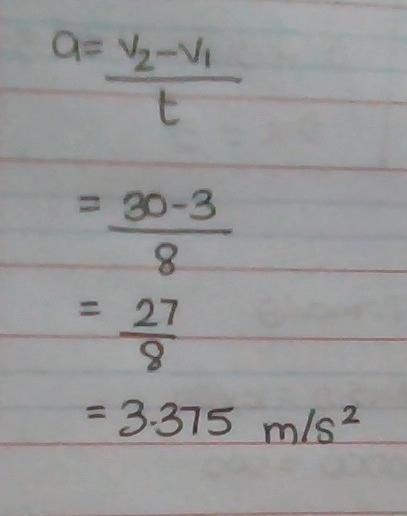 a = v₂ - v₁
t
= 30 - 3
8
= 27
8
= 3.375 m/s²